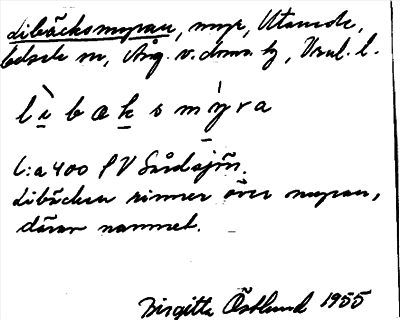 Libäcksmyran, myr, Utanede,
m, Ång. v. doms. tg, Vnl. l.
lìbaksmỳra
C:a 400 SV Sårdsjön.
Libäcken rinner över myran,
därav namnet.
Birgitta Östlund 1955